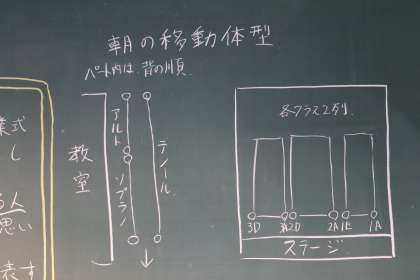 朝の移動体型
パート内は背の順
教室
アルト
ソプラノ
テノール
各クラス2列
3D 3A 2D 2A 1E 1A
ステージ
業式
し
る人
思い
表す